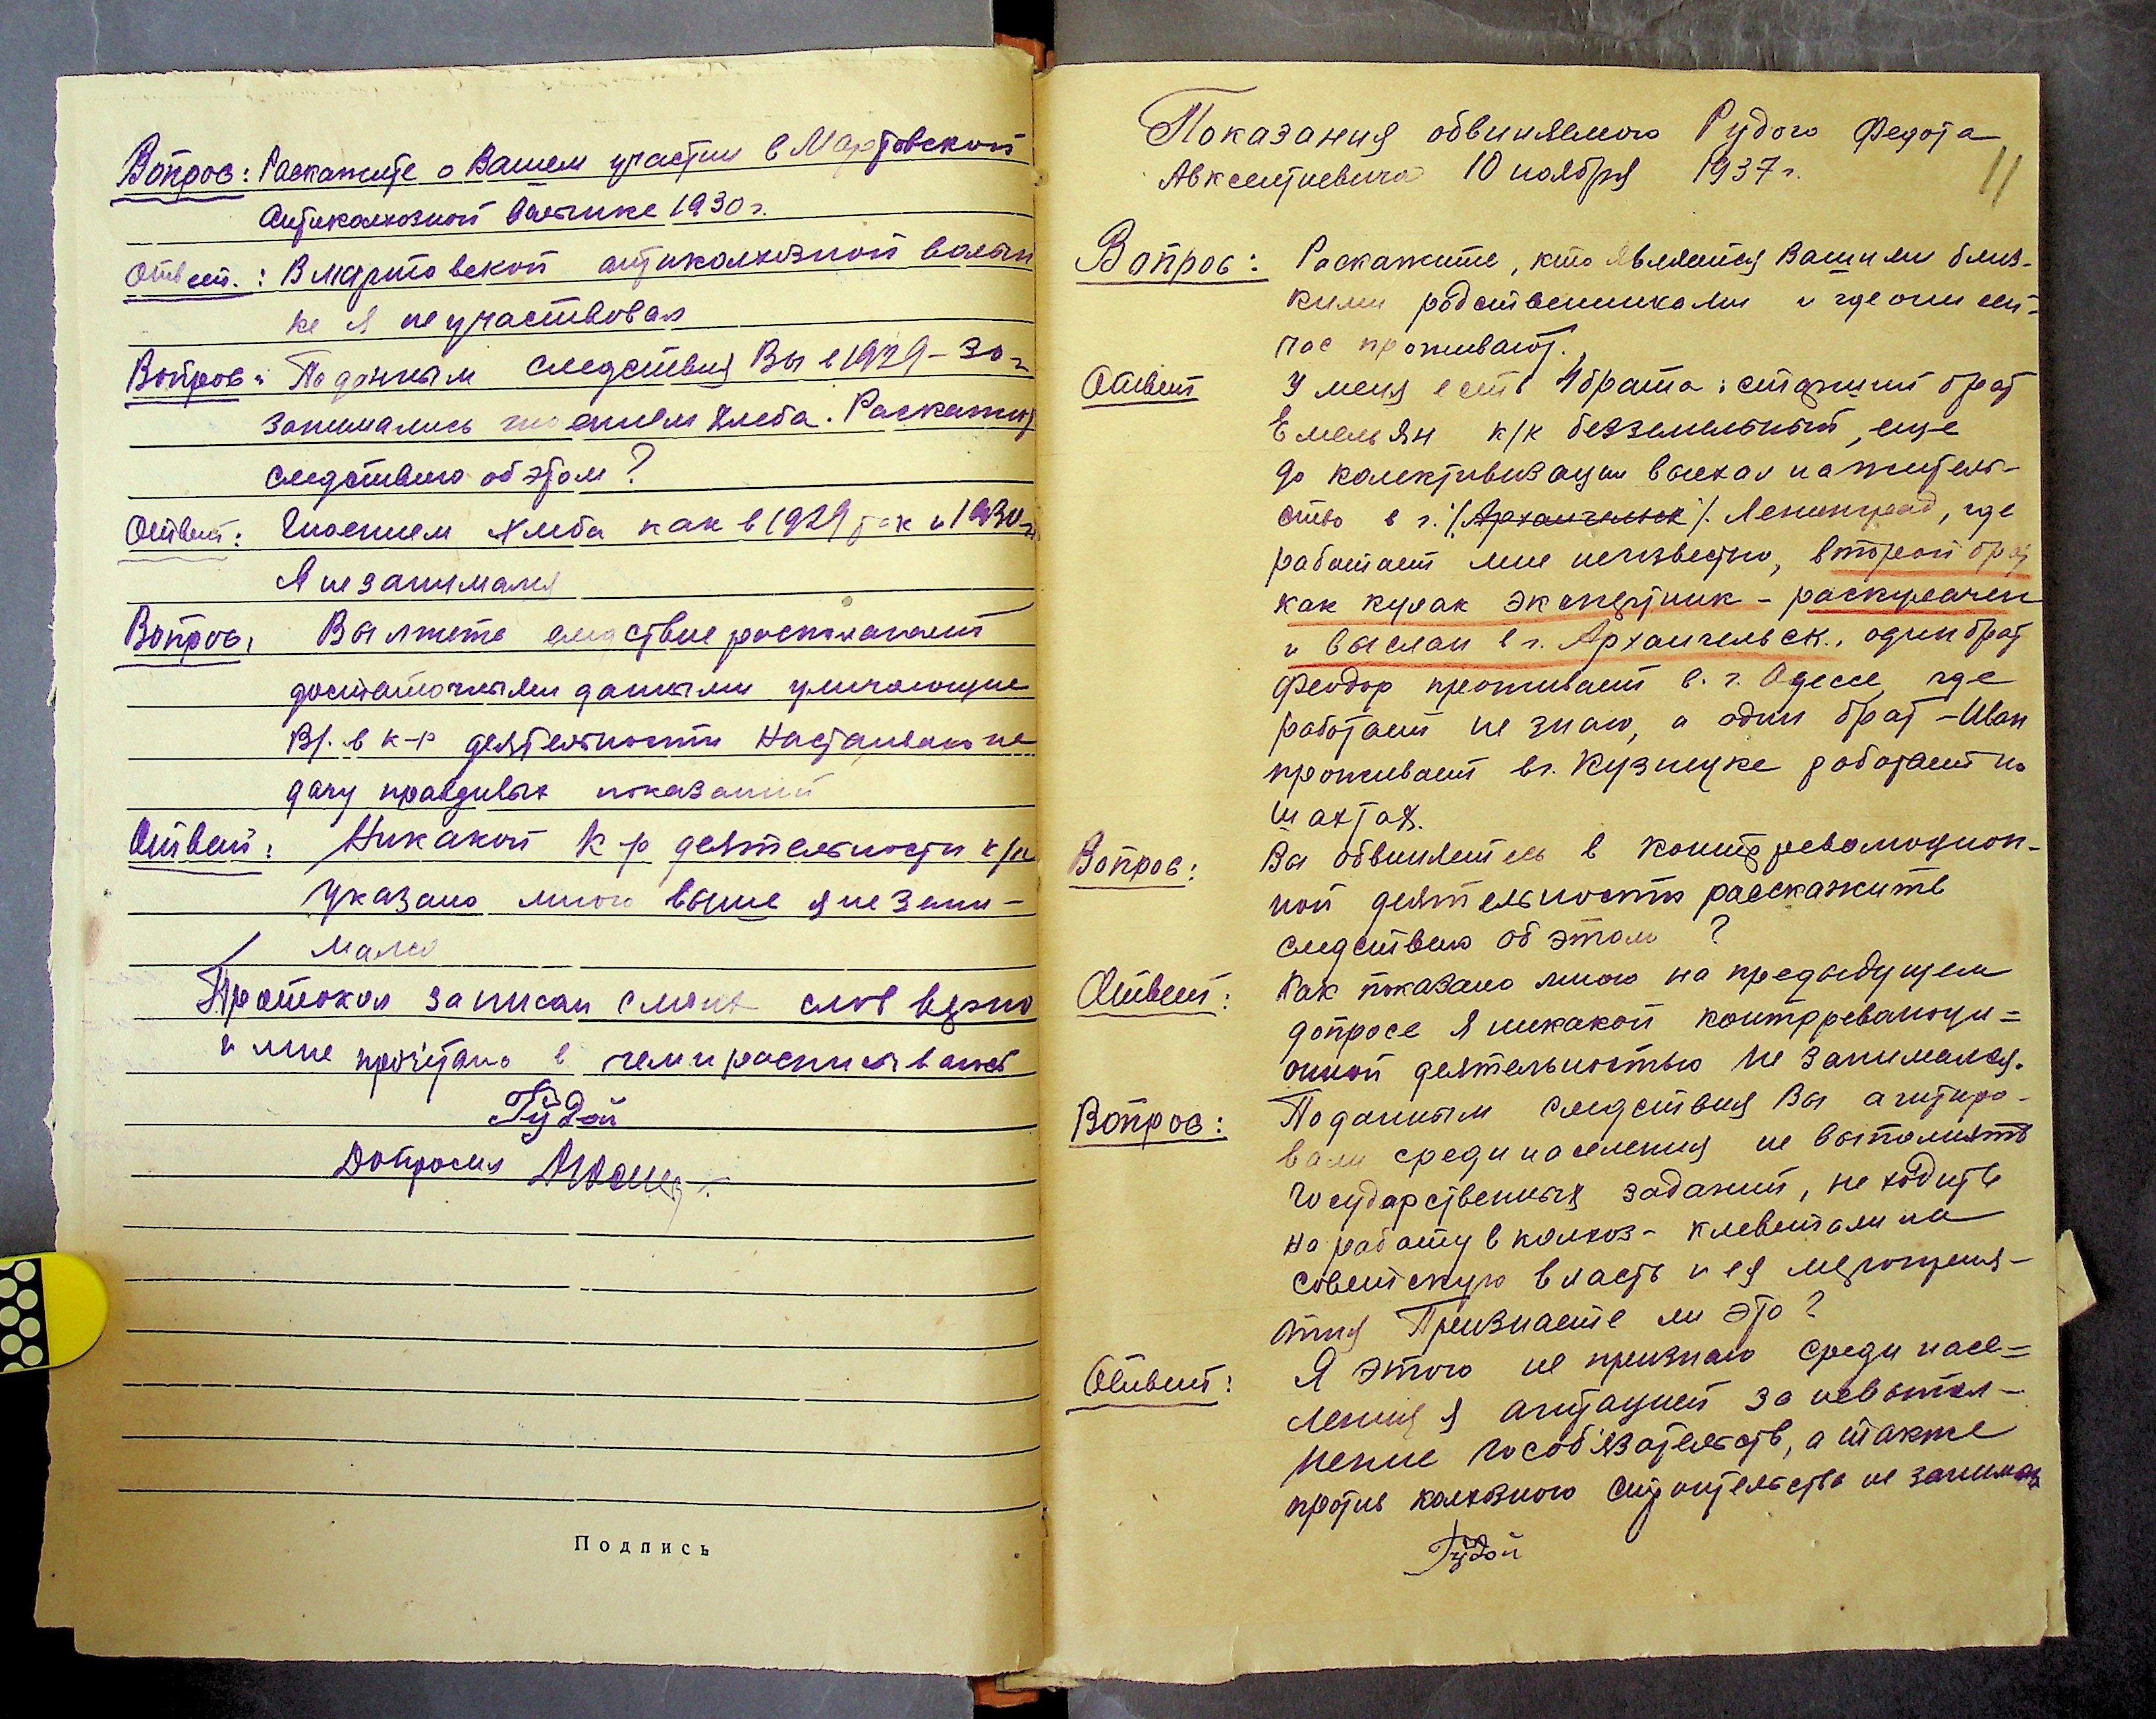 Вопрос: Раскажите о Вашем участии в Мартовской
антиколхозной волынке 1930 г.
Ответ.: В мартовской антиколхозной волын
ке я не участвовал
Вопрос: По данным следствия Вы в 1929-30 г
занимались гноением хлеба. Раскажит
следствию об этом?
Ответ: Гноением хлеба как в 1929 так и 1930 г
я не занимался
Вопрос: Вы лжете следствие роспологает
достаточными даными уличающие
Вы. в к-р деятельности Настаиваю на
дачу правдивых показаний
Ответ: Никакой к-р деятельности к/к
указано мною выше я не зани-
мался
Протокол записан с моих слов верно
и мне прочитано в чем и росписываюсь
Рудой
Допросил
Подпись
Показания обвиняемого Рудого Федота
Авксентиевича 10 ноября 1937 г.
11
Вопрос: Роскажите, кто является Вашими близ-
кими родственниками и где они сей-
час проживают.
Ответ У меня есть 4 брата: старший брат
Емельян к/к безземельный, еще
до колективизации выехал на житель-
ство в г. /Архангельск/. Ленинград, где
работает мне неизвестно, второй брат
как кулак экспертник - раскулачен
и выслан в г. Архангельск., один брат
Феодор проживает в. г. Одессе, где
работает не знаю, а один брат - Иван
проживает в г. Кузнецке работает на
шахтах.
Вопрос: Вы обвиняетесь в контрреволюцион-
ной деятельности расскажите
следствию об этом ?
Ответ: Как показано мною на предыдущем
допросе я никакой контрреволюци=
онной деятельностью не занимался.
Вопрос: По данным следствия Вы агитиро-
вали среди населения не выполнять
государственных заданий, не ходить
на работу в колхоз - клеветали на
советскую власть и ея мероприя-
тия Признаете ли это?
Ответ: Я этого не признаю среди насе=
ления я агитацией за невыпол-
нение гособ'язательств, а также
против колхозного строительства не занимал
Рудой